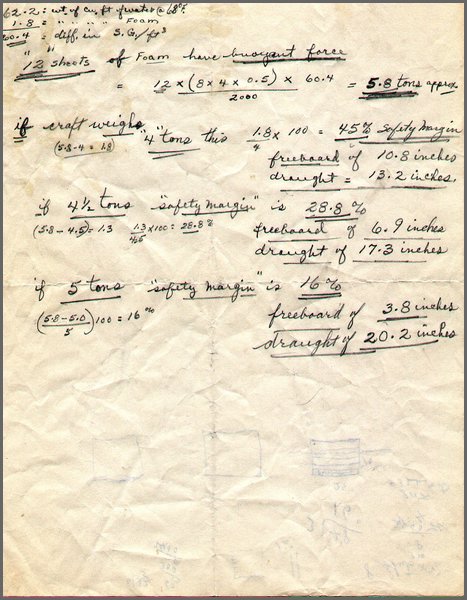 62.2 : wt of cu. ft of water @ 68°F
1.8 = " " " " Foam
60.4 = diff. in S.G./ft³
"12" sheets of Foam have buoyant force
= 12 x (8 x 4 x 0.5) x 60.4 / 2000 = 5.8 tons approx.
if craft weighs "4" tons this 1.8/4 x 100 = 45% Safety Margin
(5.8-4 = 1.8)
freeboard of 10.8 inches
draught = 13.2 inches.
if 4½ tons "safety margin" is 28.8 %
(5.8 - 4.5) = 1.3 1.3/4.5 x 100 = 28.8% freeboard of 6.9 inches
draught of 17.3 inches
if 5 tons "safety margin" is 16%
((5.8-5.0)/5) 100 = 16% freeboard of 3.8 inches
draught of 20.2 inches